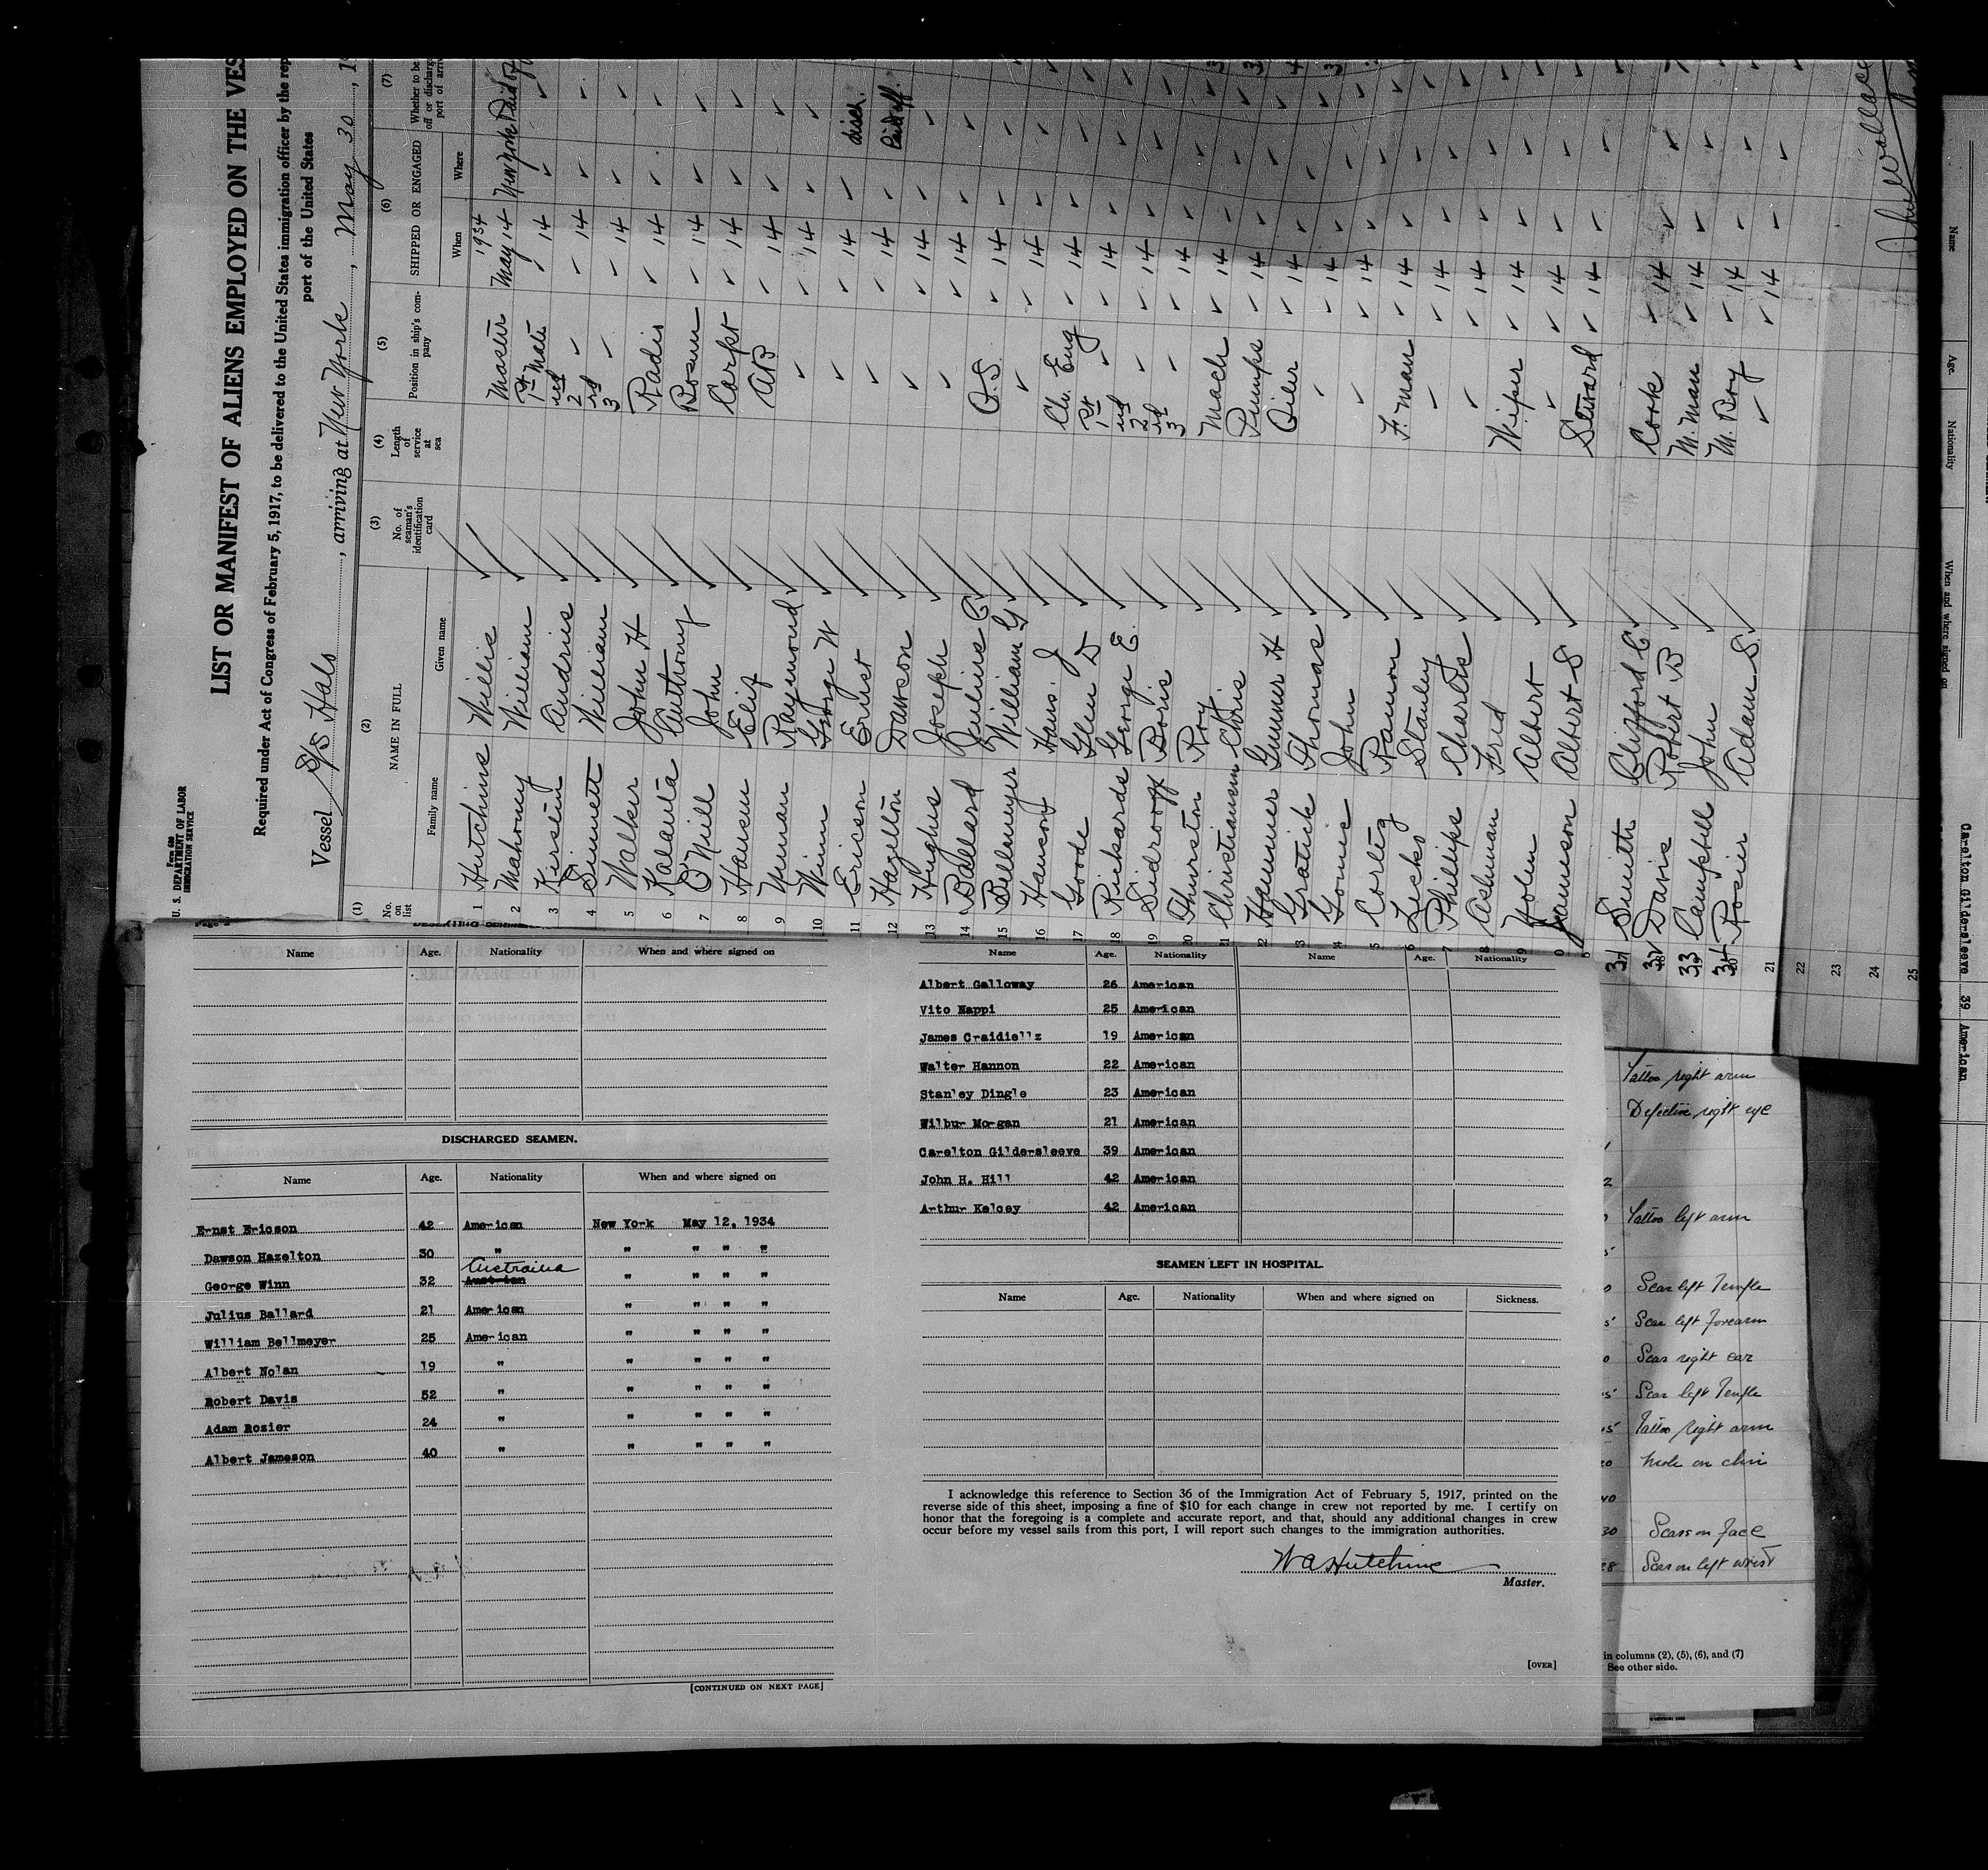 U. S. DEPARTMENT OF LABOR
IMMIGRATION SERVICE
LIST OR MANIFEST OF ALIENS EMPLOYED ON THE VES
Required under Act of Congress of February 5, 1917, to be delivered to the United States immigration officer by the rep
port of the United States
Vessel S/S Halo, arriving at New York, May 30, 1
(1) (2) (3) (4) (5) (6) (7)
No. on list
NAME IN FULL
Family name Given name
No. of seaman's identification card
Length of service at sea
Position in ship's company
SHIPPED OR ENGAGED
When Where
Whether to be
off or discharg
port of arriv
1934
1 Hutchins Willis Master May 14 New York Paid off
2 Mahoney William 1st Mate 14
3 Kirsein Andris 2nd 14
4 Sinnett William 3rd 14
5 Walker John H Radio 14
6 Kalanta Anthony Bosun 14
7 O'Neill John Carpt 14
8 Hansen Elif AB 14
9 Raymond 14
10 Winn George W 14
11 Ericson Ernest 14 disch.
12 Hazelton Dawson 14 Paid off.
13 Hughes Joseph 14
14 Ballard Julius C O.S. 14
15 Bellmeyer William G 14
16 Hanson Hans J Ch. Eng 14
17 Goode Glen D 1st 14
18 Rickards George E. 2nd 14
19 Sidrooff Boris 3rd 14
20 Thurston Roy Mach 14
21 Christiansen Chris Pumps 14
2 Hammer Gunner H Oiler 14
3 Gratrik Thomas 14
4 Gomes John 14
5 Cortez Ramon F. man 14
6 Lesko Stanley 14
7 Phillips Charles 14
8 Ashman Fred Wiper 14
9 Nolen Albert 14
0 Jamison Albert S Steward 14
31 Smith Clifford C Cook 14
32 Davis Robert B M. Man 14
33 Campbell John M. Boy 14
34 Rosier Adam S. 14
21
22
23
24
25
Name Age. Nationality When and where signed on
DISCHARGED SEAMEN.
Name Age. Nationality When and where signed on
Ernst Ericson 42 American New York May 12, 1934
Dawson Hazelton 30 " " " " "
George Winn 32 Austrian Australia " " " "
Julius Ballard 21 American " " " "
William Bellmeyer 25 American " " " "
Albert Nolan 19 " " " " "
Robert Davis 52 " " " " "
Adam Rozier 24 " " " " "
Albert Jameson 40 " " " " "
[CONTINUED ON NEXT PAGE]
Name Age. Nationality Name Age. Nationality
Albert Galloway 26 American
Vito Nappi 25 American
James Craidiellz 19 American
Walter Hannon 22 American
Stanley Dingle 23 American
Wilbur Morgan 21 American
Carelton Gildersleeve 39 American
John H. Hill 42 American
Arthur Kelcey 42 American
SEAMEN LEFT IN HOSPITAL.
Name Age. Nationality When and where signed on Sickness.
I acknowledge this reference to Section 36 of the Immigration Act of February 5, 1917, printed on the
reverse side of this sheet, imposing a fine of $10 for each change in crew not reported by me. I certify on
honor that the foregoing is a complete and accurate report, and that, should any additional changes in crew
occur before my vessel sails from this port, I will report such changes to the immigration authorities.
W A Hutchins
Master.
[OVER]
Tattoo right arm
Defective right eye
Tattoo left arm
Scar left Temple
Scar left forearm
Scar right ear
Scar left Temple
Tattoo right arm
Mole on chin
40
30 Scars on face
28 Scar on left wrist
in columns (2), (5), (6), and (7)
See other side.
Name Age. Nationality When and where signed on
Carelton Gildersleeve 39 American